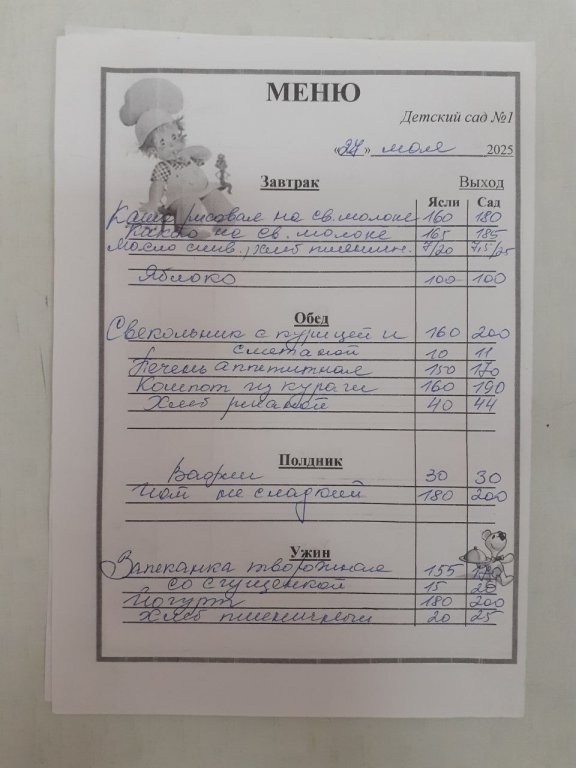 МЕНЮ
Детский сад №1
«27» мая 2025
Завтрак Выход
Ясли Сад
Каша рисовая на св. молоке 160 180
Какао на св. молоке 165 185
Масло слив., хлеб пшенич. 7/20 7,5/25
Яблоко 100 100
Обед
Свекольник с курицей и 160 200
сметаной 10 11
Печень аппетитная 150 170
Компот из кураги 160 190
Хлеб ржаной 40 44
Полдник
Вафли 30 30
Чай не сладкий 180 200
Ужин
Запеканка творожная 155
со сгущенкой 15 20
Йогурт 180 200
Хлеб пшеничный 20 25